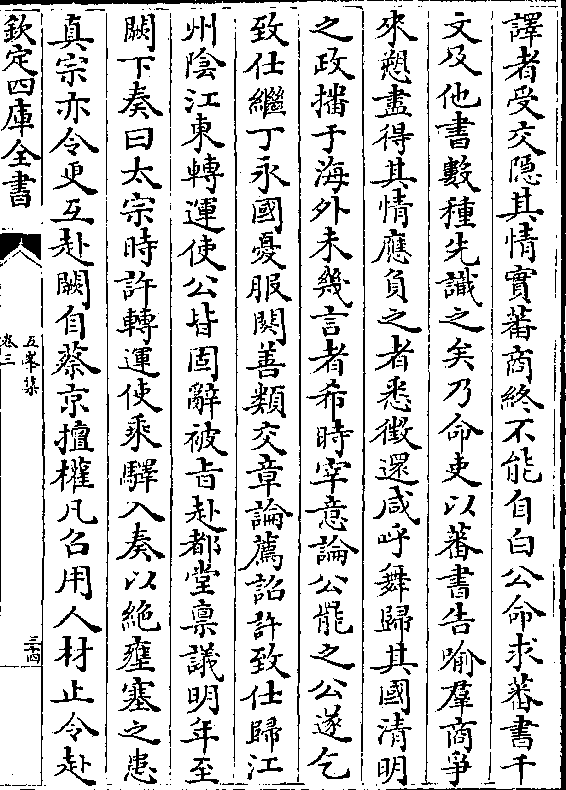 譯者受交隱其情實蕃商終不能自白公命求蕃書千
文及他書數種先識之矣乃命吏以蕃書告喻羣商爭
來愬盡得其情應負之者悉徵還咸呼舞歸其國清明
之政播于海外未幾言者希時宰意論公罷之公遂乞
致仕繼丁永國憂服闋善類交章論薦詔許致仕歸江
州陰江東轉運使公皆固辭被旨赴都堂禀議明年至
闕下奏曰太宗時許轉運使乘驛入奏以絶壅塞之患
真宗亦令更互赴闕自蔡京擅權凡召用人材止令赴
欽定四庫全書
五峯集
卷三
三十四